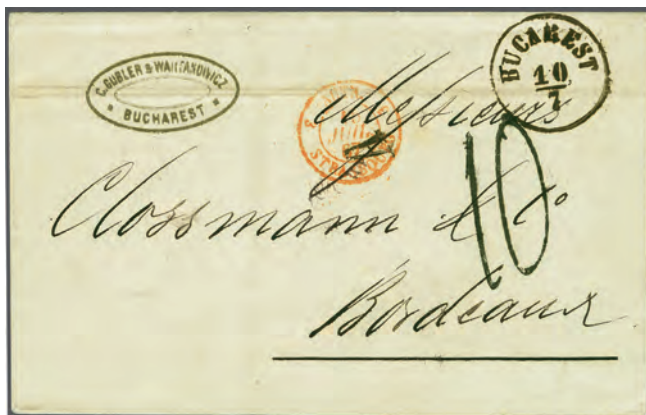 C. GUBLER & WARTANOWICZ
* BUCHAREST *
BUCAREST
10
7
Messieurs
Clossmann & Co
10
Bordeaux